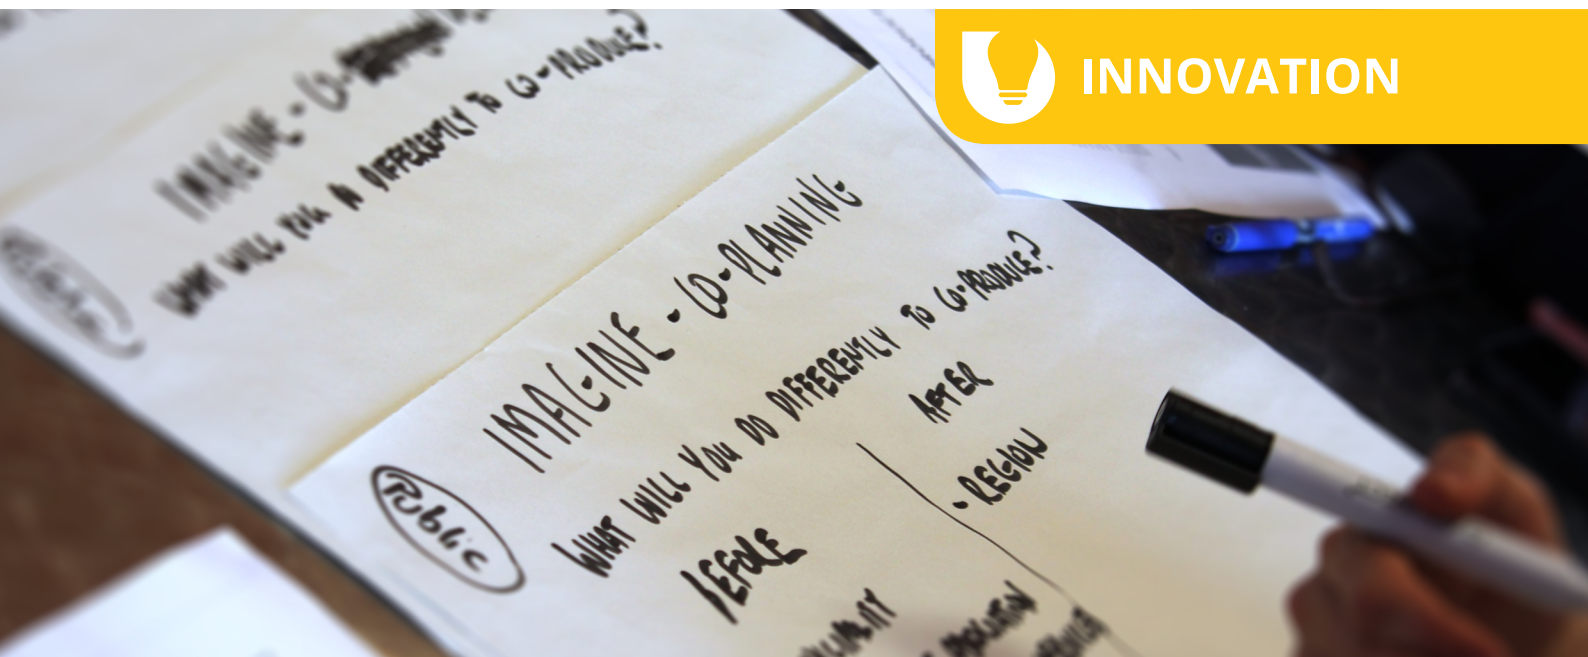 INNOVATION
IMAGINE - CO-
WHAT WILL YOU DO DIFFERENTLY TO CO-PRODUCE?
Public
IMAGINE - CO-PLANNING
WHAT WILL YOU DO DIFFERENTLY TO CO-PRODUCE?
BEFORE
AFTER
• REGION